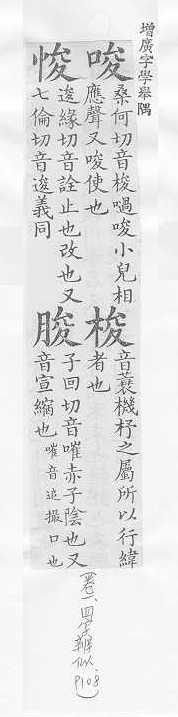 增廣字學舉隅
唆
桑何切音梭嗢唆小兒相
應聲又唆使也
梭
音蓑機杼之屬所以行緯
者也
悛
逡緣切音詮止也改也又
七倫切音逡義同
朘
子回切音嗺赤子陰也又
音宣縮也嗺音追撮口也
(卷二、四字辨似
P108)